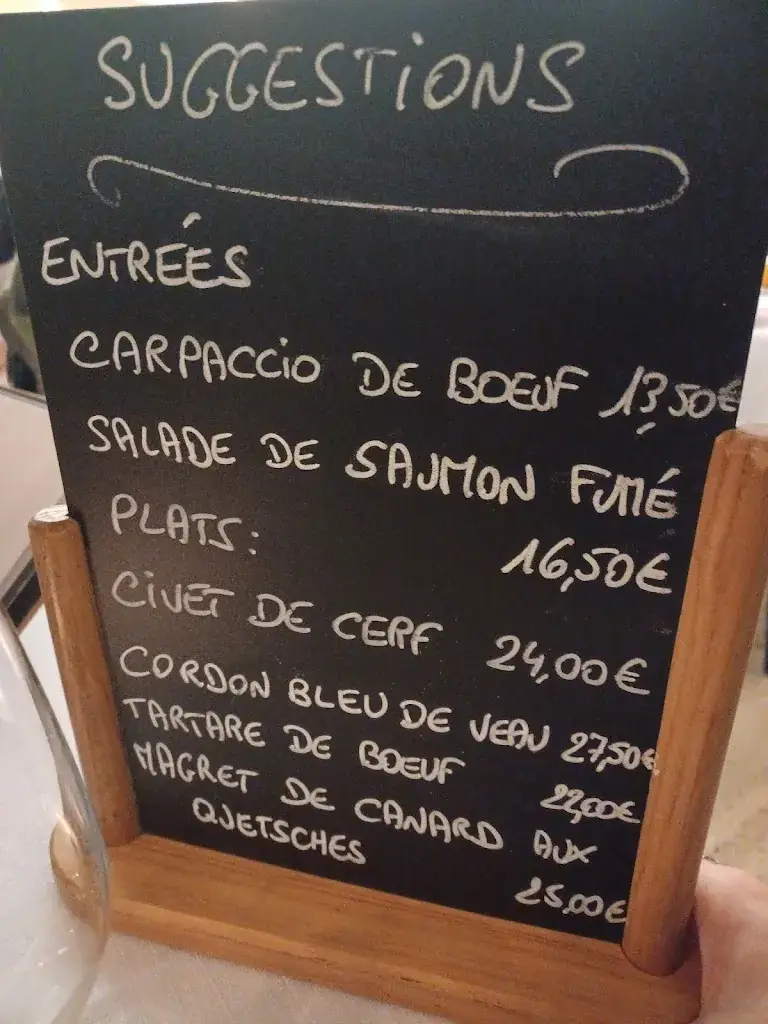 SUGGESTIONS
ENTRÉES
CARPACCIO DE BOEUF 13,50€
SALADE DE SAUMON FUMÉ
16,50€
PLATS:
CIVET DE CERF 24,00€
CORDON BLEU DE VEAU 27,50€
TARTARE DE BOEUF 22,00€
MAGRET DE CANARD AUX
QUETSCHES
25,00€